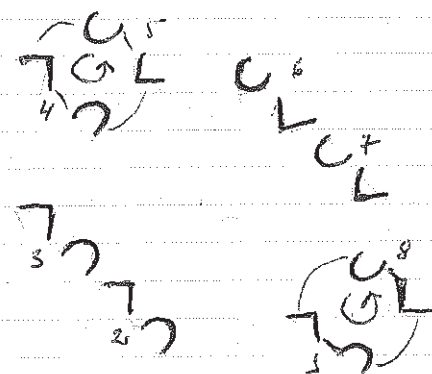 5
4
6
7
3
2
8
1